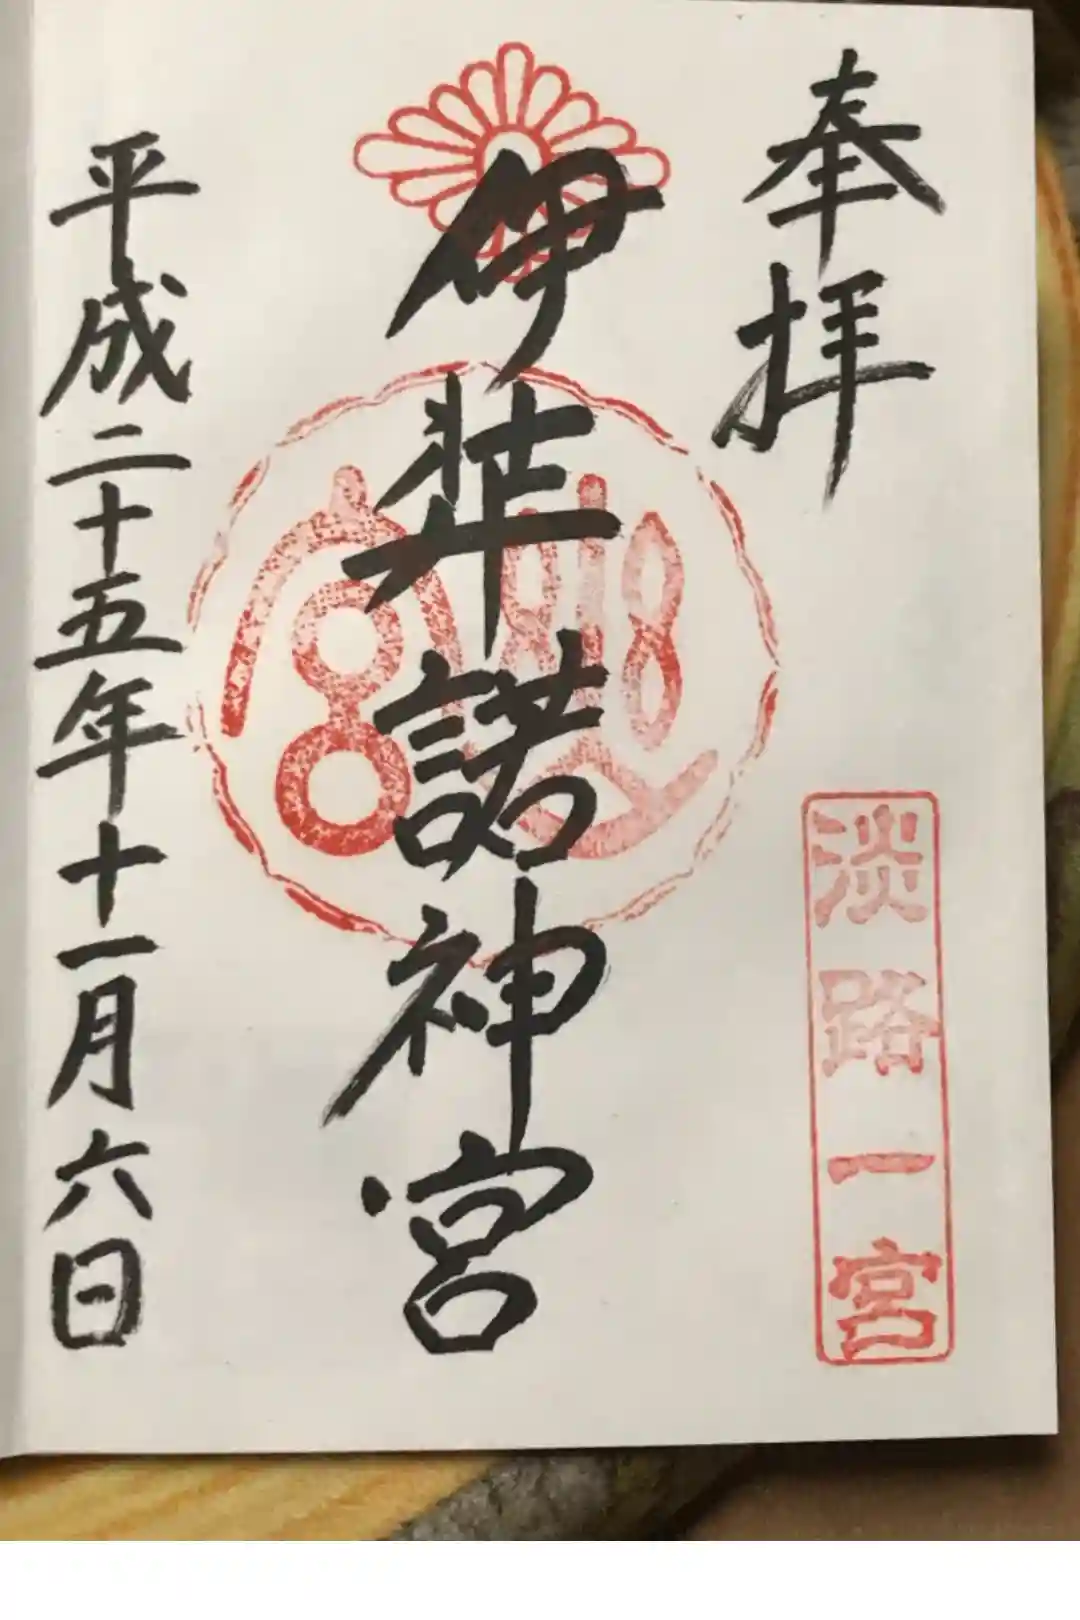 奉拝
淡路一宮
伊弉諾神宮
平成二十五年十一月六日